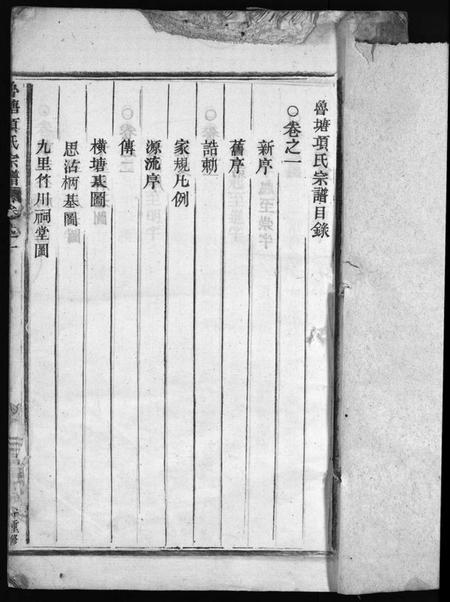 魯塘項氏宗譜目錄
○卷之一
新序
舊序
誥勅
家規凡例
源流序
傳
橫塘基圖
思沽柄基圖
九里竹川祠堂圖
魯塘項氏宗譜
重修